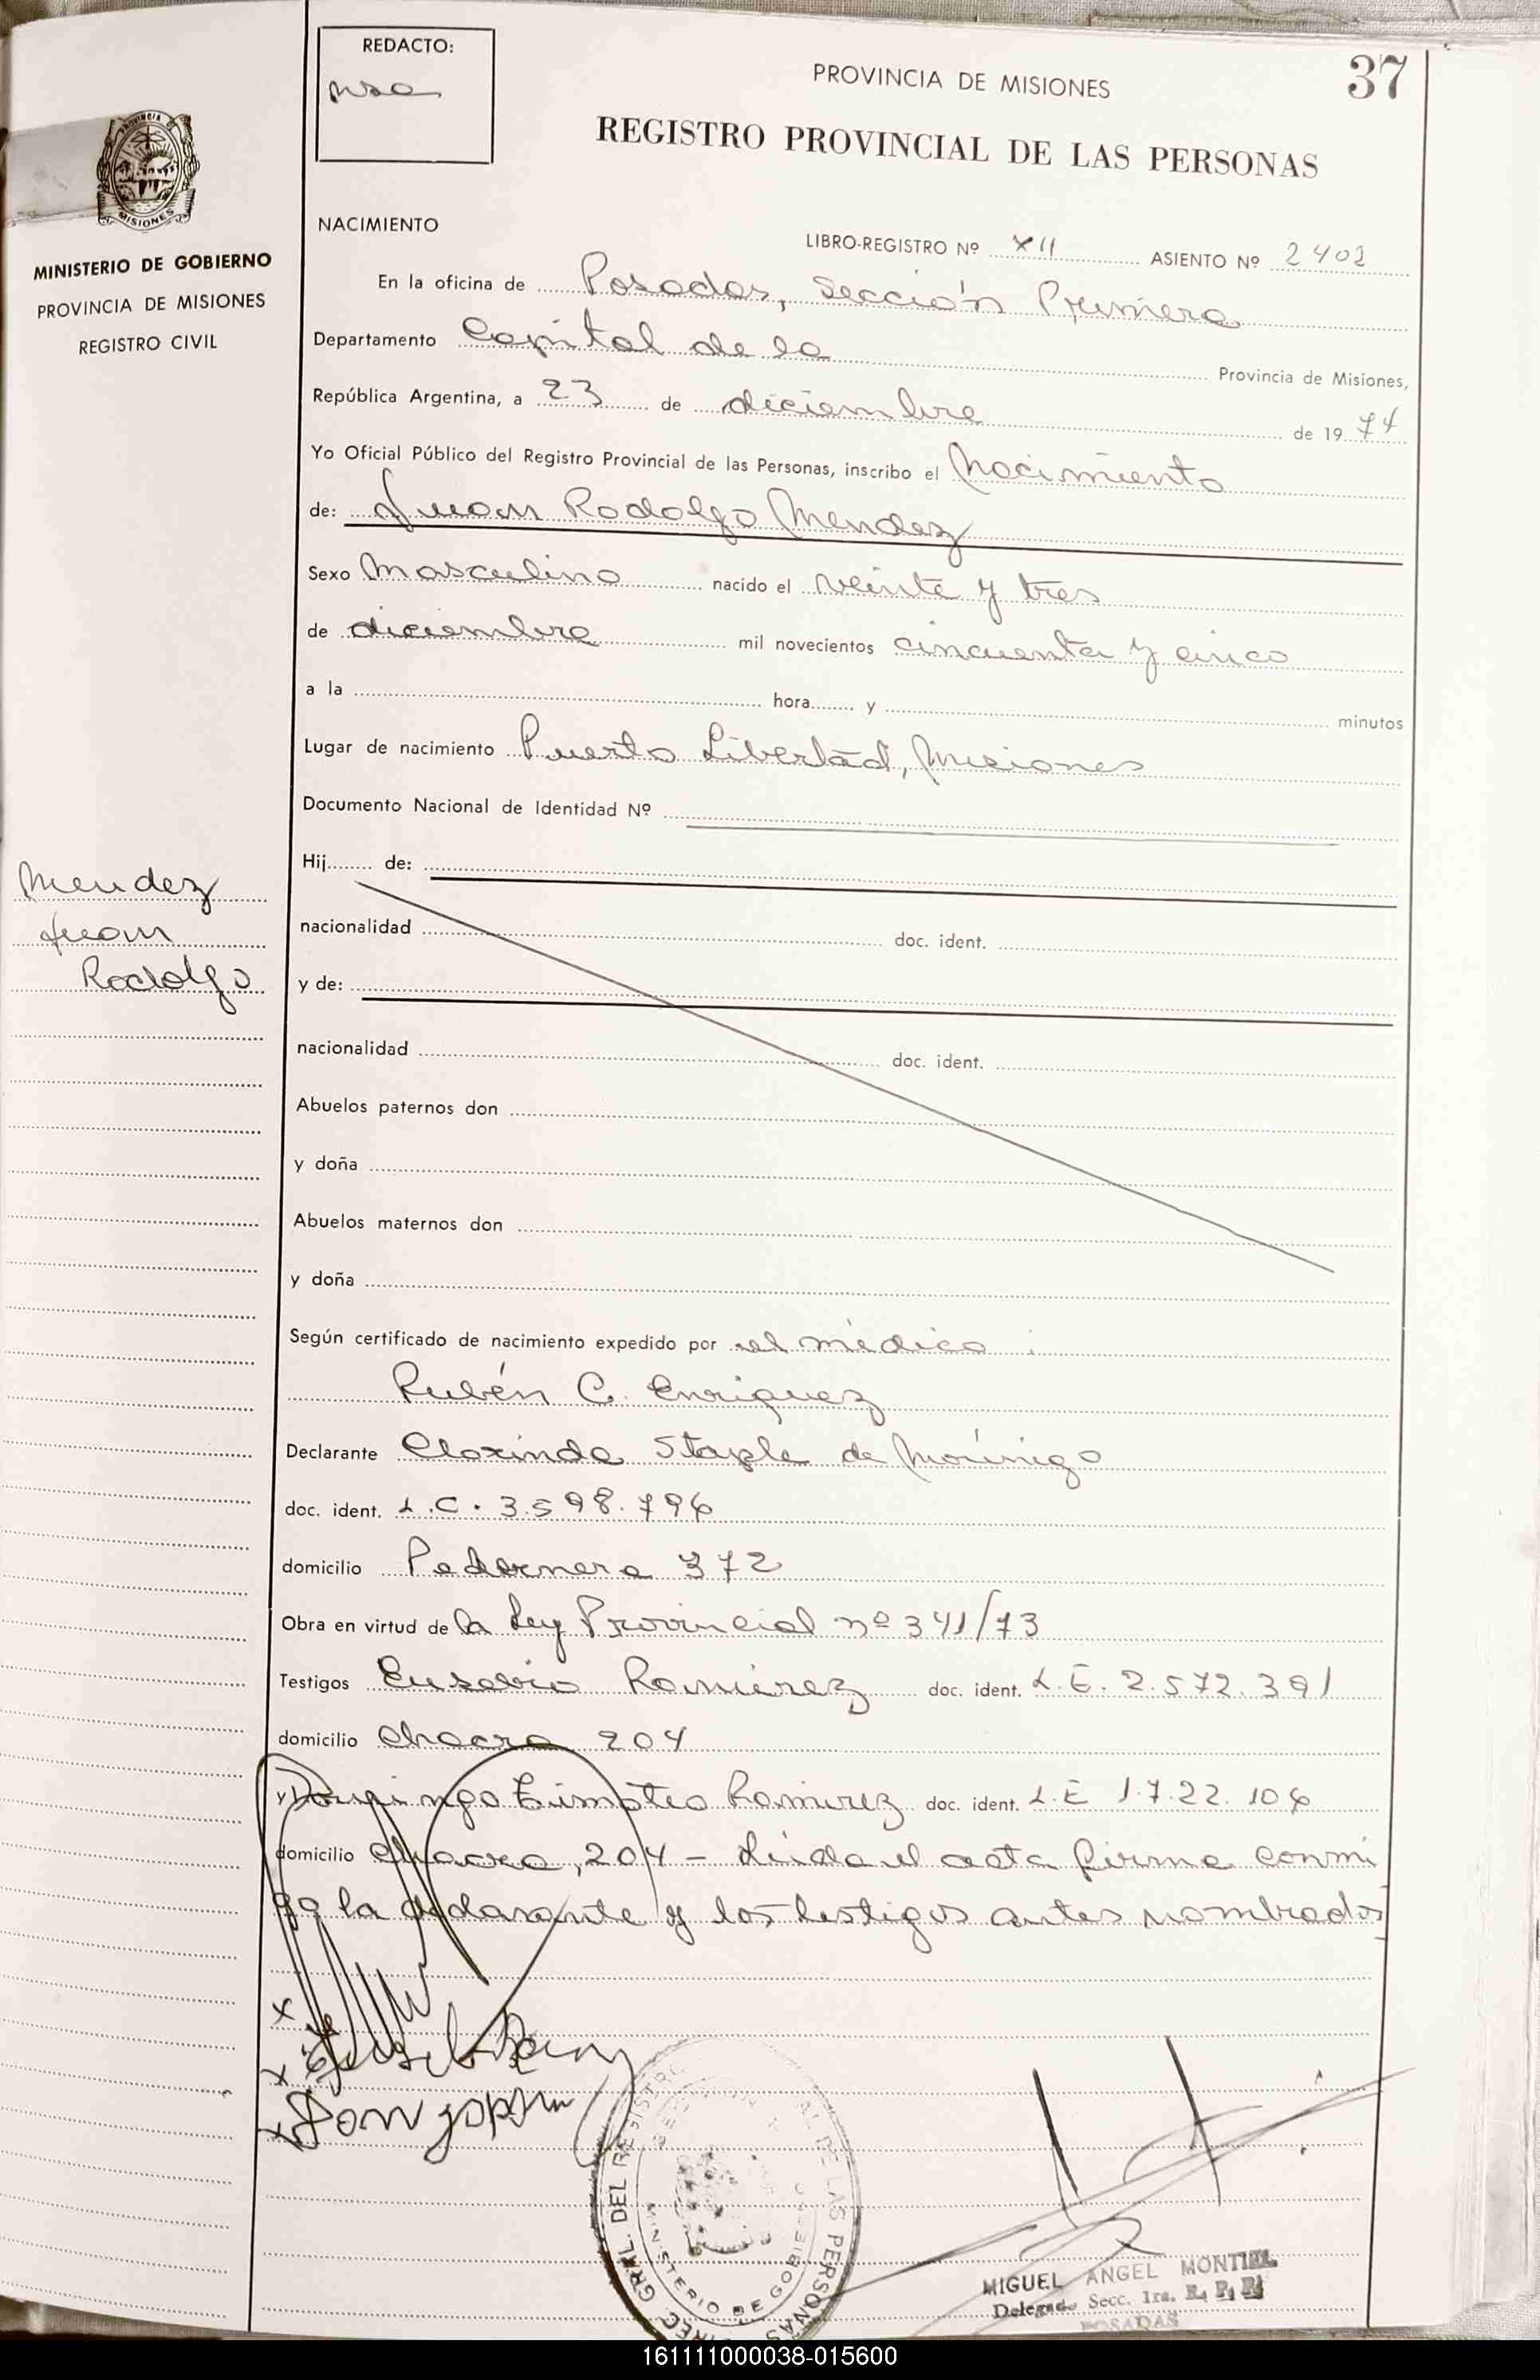 REDACTO:
37
PROVINCIA DE MISIONES
REGISTRO PROVINCIAL DE LAS PERSONAS
PROVINCIA
MISIONES
MINISTERIO DE GOBIERNO
PROVINCIA DE MISIONES
REGISTRO CIVIL
NACIMIENTO
LIBRO-REGISTRO Nº XII ASIENTO Nº 2402
En la oficina de Posadas, Sección Primera
Departamento Capital de la Provincia de Misiones,
República Argentina, a 23 de diciembre de 1974
Yo Oficial Público del Registro Provincial de las Personas, inscribo el Nacimiento
de: Juan Rodolfo Mendez
Sexo Masculino nacido el veinte y tres
de diciembre mil novecientos cincuenta y cinco
a la hora y minutos
Lugar de nacimiento Puerto Libertad, Misiones
Documento Nacional de Identidad Nº
Mendez
Juan
Rodolfo
Hij de:
nacionalidad doc. ident.
y de:
nacionalidad doc. ident.
Abuelos paternos don
y doña
Abuelos maternos don
y doña
Según certificado de nacimiento expedido por el médico
Rubén C. Enriquez
Declarante Clorinda Staple de Morínigo
doc. ident. L.C. 3.598.796
domicilio Pedernera 372
Obra en virtud de la Ley Provincial nº 341/73
Testigos Eusebio Ramirez doc. ident. L.E. 2.572.391
domicilio Chacra 204
y Domingo Timoteo Ramirez doc. ident. L.E 1.722.106
domicilio Chacra, 204 - Leida el acta firma conmi
go la declarante y los testigos antes nombrados
DIREC. GRAL. DEL REGISTRO DE LAS PERSONAS
MINISTERIO DE GOBIERNO
MIGUEL ANGEL MONTIEL
Delegado Secc. 1ra. R. P. P.
POSADAS
161111000038-015600